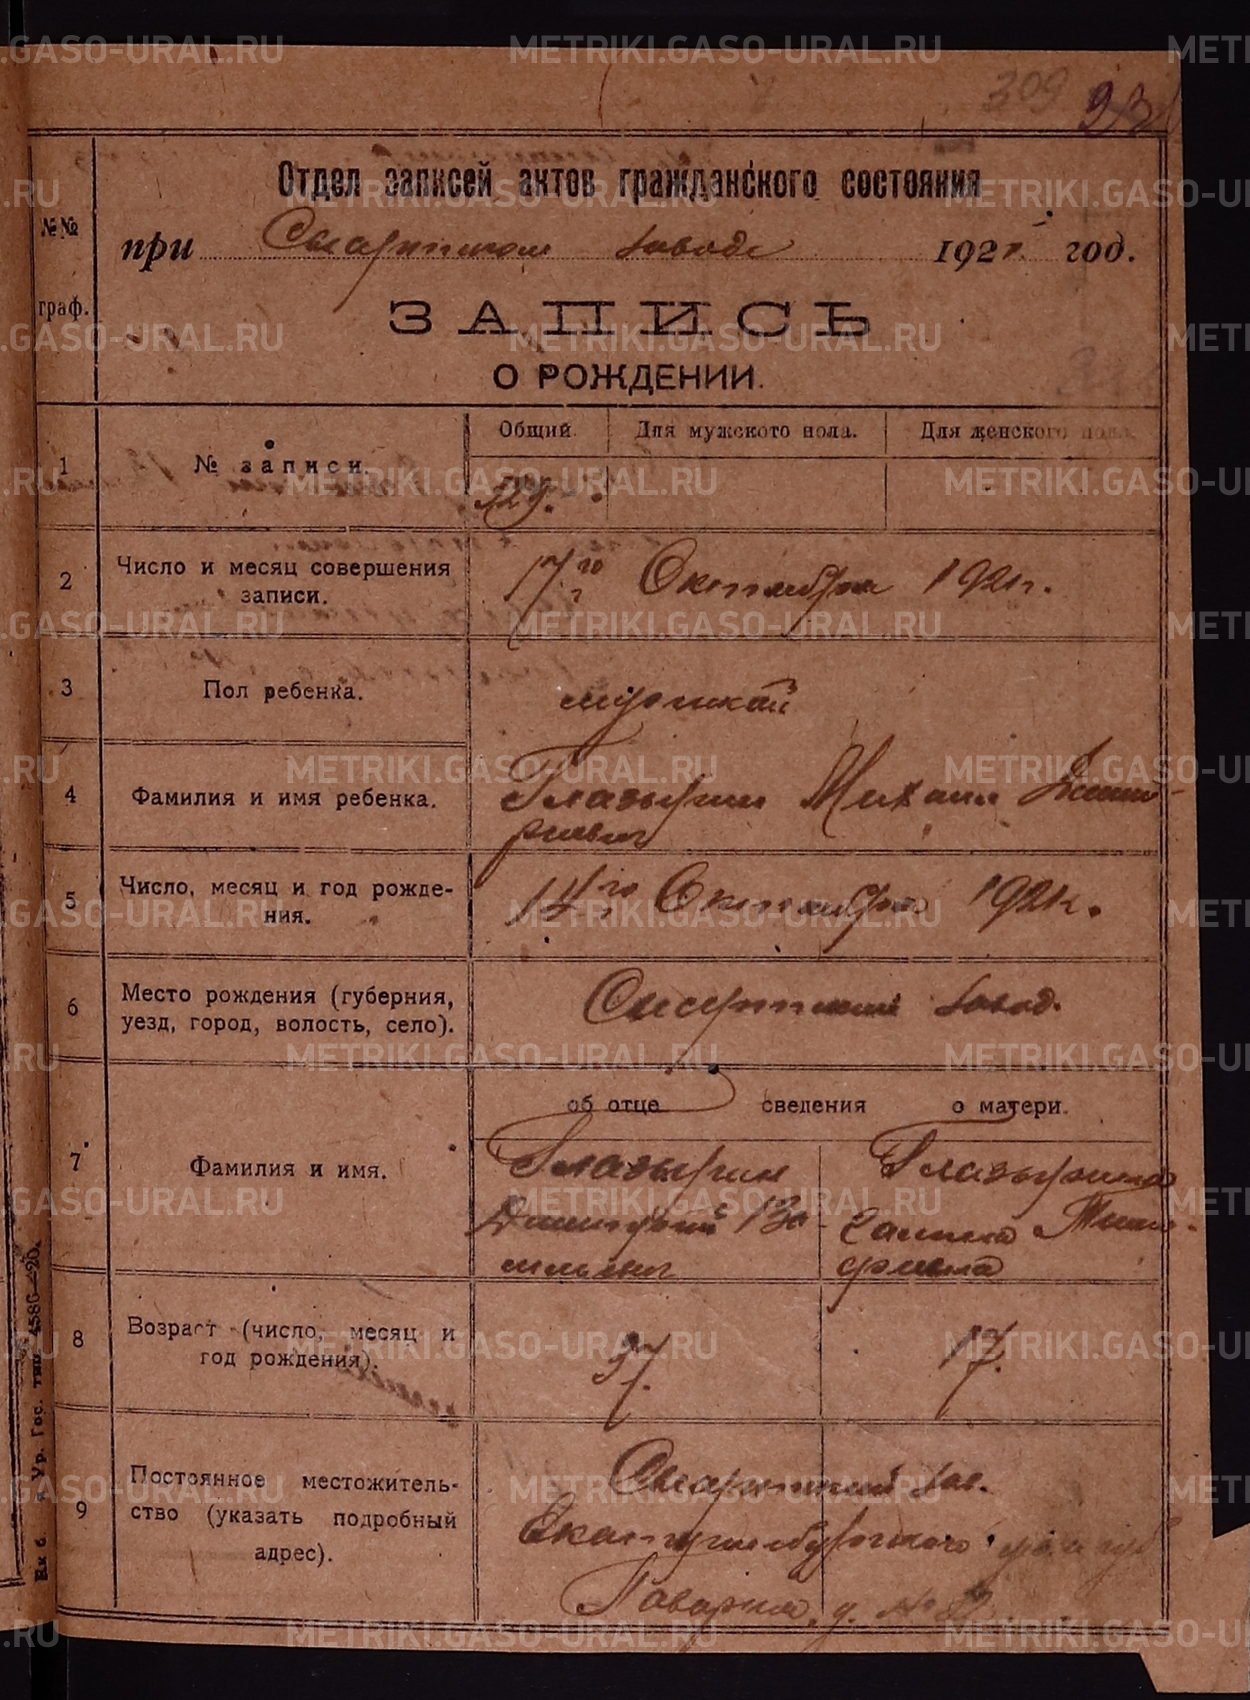 309 23
Отдел записей актов гражданского состояния
№№ граф.
при Сысертском заводе 1921 год.
ЗАПИСЬ
О РОЖДЕНИИ.
Общий. Для мужского пола. Для женского пола.
1 № записи.
2 Число и месяц совершения 17го Октября 1921г.
записи.
3 Пол ребенка. мужской
4 Фамилия и имя ребенка. Глазырин Михаил Дмит-
риевич
5 Число, месяц и год рожде- 14го Октября 1921г.
ния.
6 Место рождения (губерния, Сысертский завод.
уезд, город, волость, село).
об отце сведения о матери.
7 Фамилия и имя. Глазырин Глазырина
Дмитрий Ва- Тимо-
сильевич феевна
8 Возраст (число, месяц и 37. 17.
год рождения).
9 Постоянное местожитель- Сысертский зав.
ство (указать подробный Екатеринбургского
адрес). д. №
Ур. Гос. тип. 4586—20.
METRIKI.GASO-URAL.RU